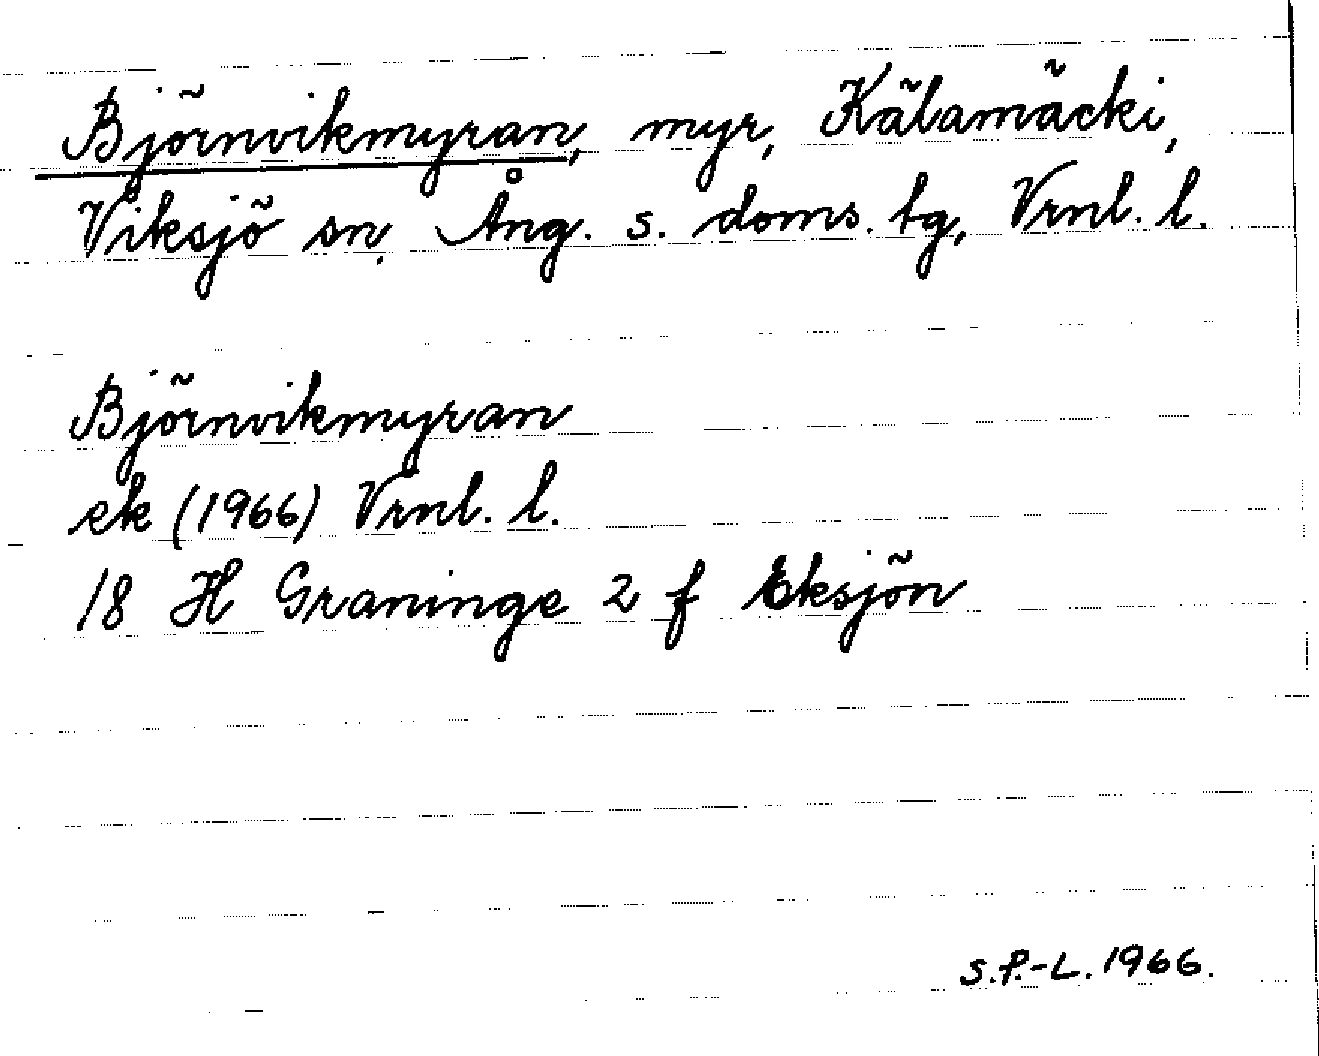 Björnvikmyran, myr, Kälamäcki,
Viksjö sn. Ång. s. doms. tg, Vrnl. l.
Björnvikmyran
ek (1966) Vrnl. l.
18 H Graninge 2 f Eksjön
S.P.-L. 1966.